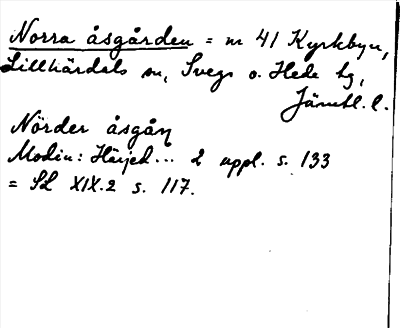 Norra åsgården = nr 41 Kyrkbyn,
Lillhärdals sn, Svegs o. Hede tg,
Jämtl. l.
Nörder åsgåɳ
Modin: Härjed... 2 uppl. s. 133
= SL XIX.2 s. 117.